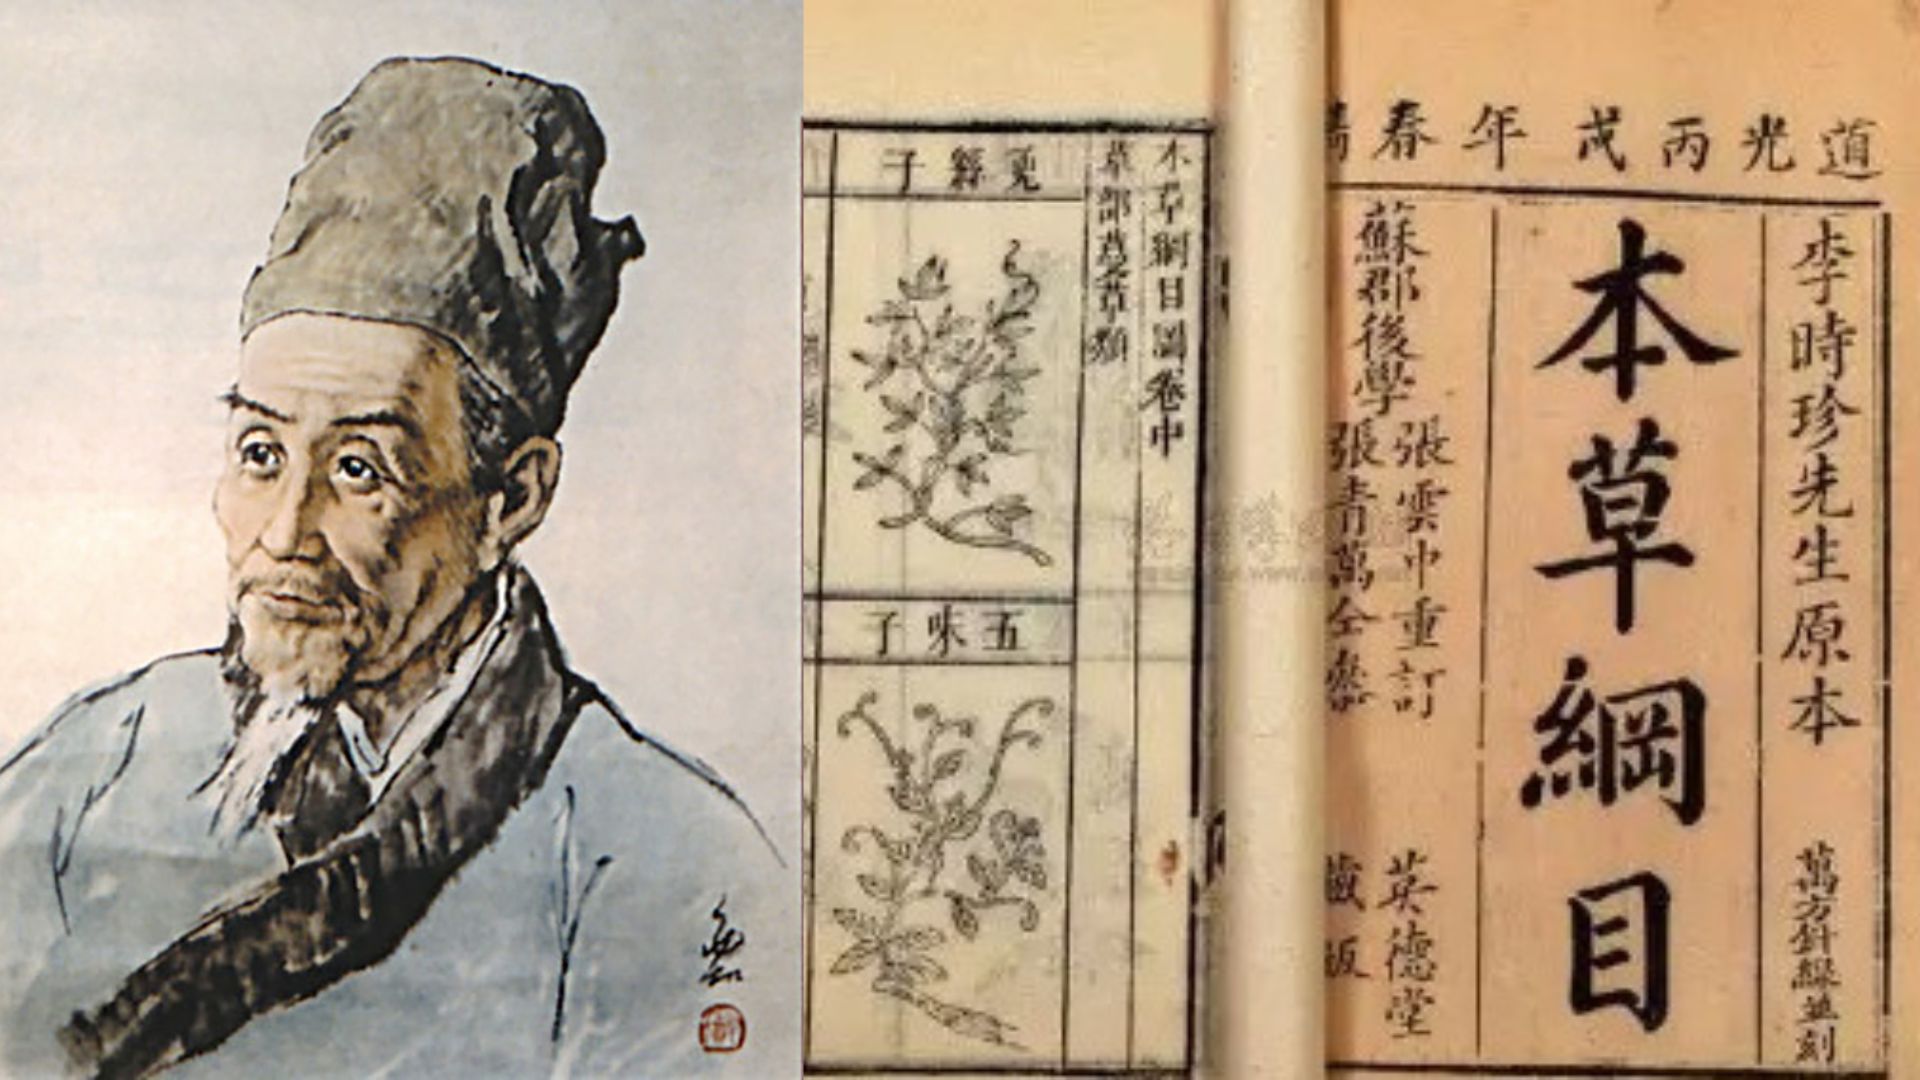 道光丙戌年春
李時珍先生原本
萬方針線並刻
本草綱目
蘇郡後學
張雲中重訂
張青萬全參
英德堂
藏板
本草綱目圖卷中
草部蔓草類
菟絲子
五味子